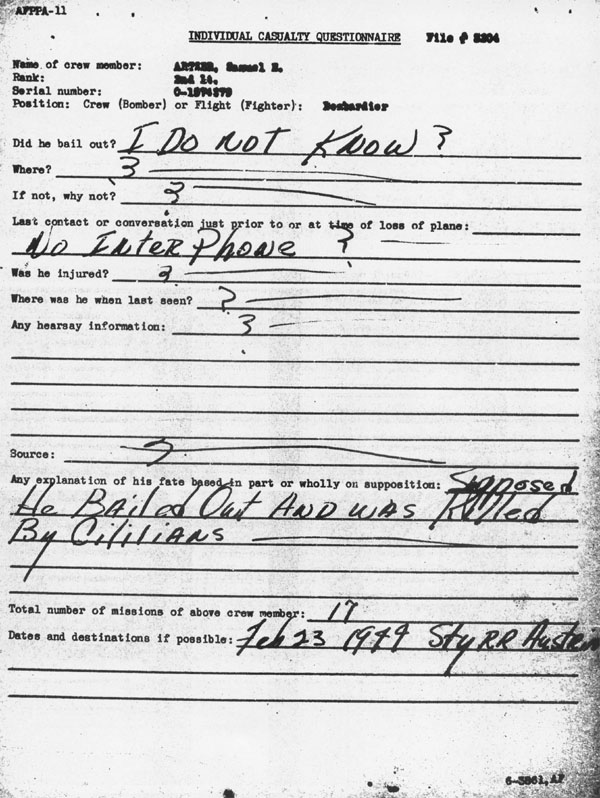 AFPPA-11
INDIVIDUAL CASUALTY QUESTIONNAIRE File # 3204
Name of crew member: Samuel E.
Rank: 2nd Lt.
Serial number:
Position: Crew (Bomber) or Flight (Fighter): Bombardier
Did he bail out? I DO NOT KNOW ?
Where? ?
If not, why not? ?
Last contact or conversation just prior to or at time of loss of plane:
NO INTER PHONE ?
Was he injured? ?
Where was he when last seen? ?
Any hearsay information: ?
Source: ?
Any explanation of his fate based in part or wholly on supposition: Supposed
He BAILED OUT AND WAS Killed
By CiliLiANS
Total number of missions of above crew member: 17
Dates and destinations if possible: Feb 23 1944 STYRR AUSTRIA